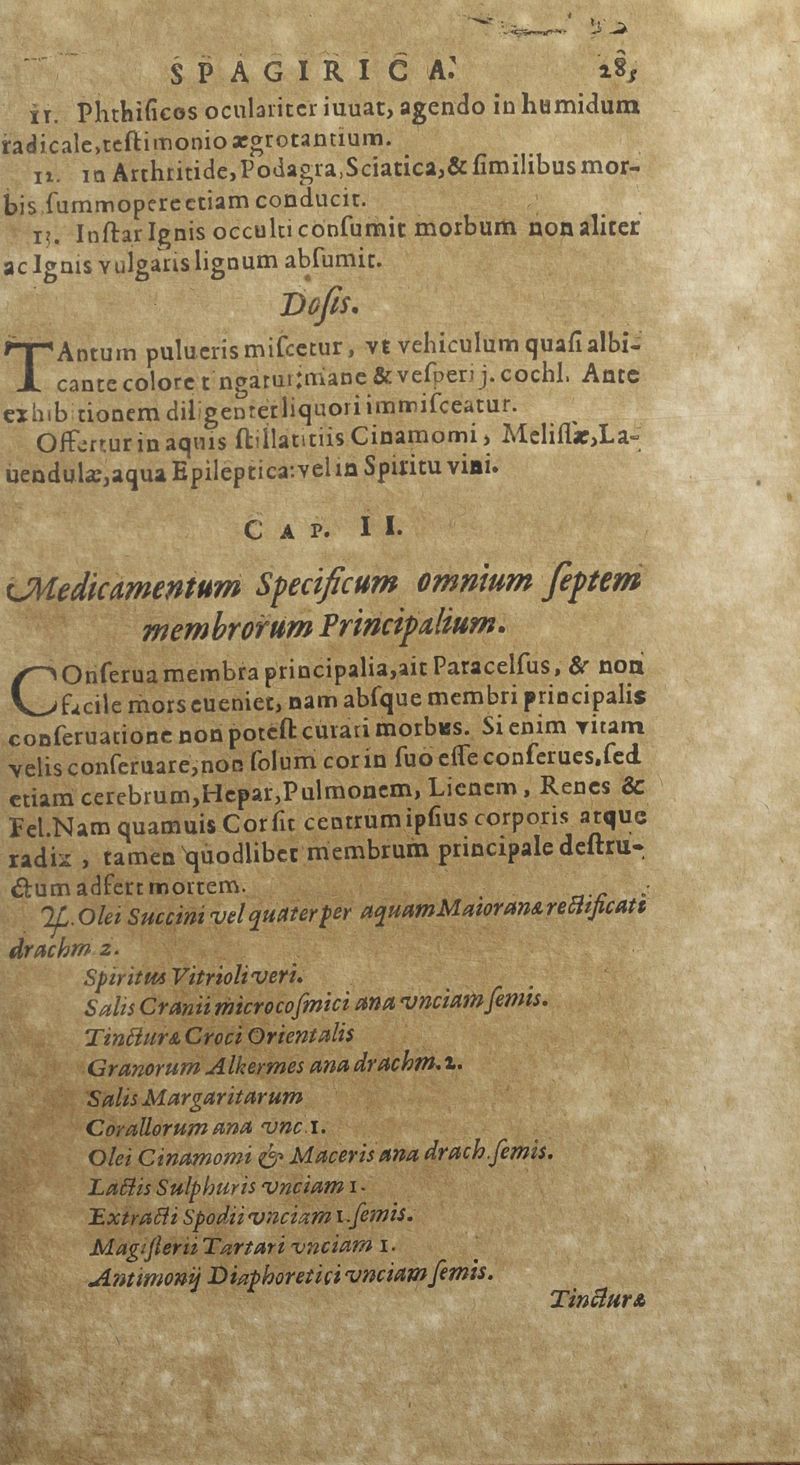 SPAGIRICA. 285
11. Phthiſicos oculariter iuuat, agendo in humidum
radicale, teſtimonio ægrotantium.
12. in Arthritide, Podagra, Sciatica, & ſimilibus mor-
bis ſummopere etiam conducit.
13. Inſtar Ignis occulti conſumit morbum non aliter
ac Ignis vulgaris lignum abſumit.
Doſis.
TAntum pulueris miſcetur, vt vehiculum quaſi albi-
cante colore t ngatur; mane & veſperi j. cochl. Ante
exhib tionem diligenter liquori immiſceatur.
Offertur in aquis ſtillatitiis Cinamomi, Meliſſæ, La-
uendulæ, aqua Epileptica: vel in Spiritu vini.
CAP. II.
Medicamentum Specificum omnium ſeptem
membrorum Principalium.
COnſerua membra principalia, ait Paracelſus, & non
facile mors eueniet, nam abſque membri principalis
conſeruatione non poteſt curari morbus. Si enim vitam
velis conſeruare, non ſolum cor in ſuo eſſe conſerues, ſed
etiam cerebrum, Hepar, Pulmonem, Lienem, Renes &
Fel. Nam quamuis Cor ſit centrum ipſius corporis atque
radix, tamen quodlibet membrum principale deſtru-
ctum adfert mortem.
℞. Olei Succini vel quater per aquam Maioranæ rectificati
drachm. 2.
Spiritus Vitrioli veri.
Salis Cranii microcoſmici ana vnciam ſemis.
Tincturæ Croci Orientalis
Granorum Alkermes ana drachm. 2.
Salis Margaritarum
Corallorum ana vnc. 1.
Olei Cinamomi & Maceris ana drach. ſemis.
Lactis Sulphuris vnciam 1.
Extracti Spodii vnciam 1. ſemis.
Magiſterii Tartari vnciam 1.
Antimonij Diaphoretici vnciam ſemis.
Tincturæ